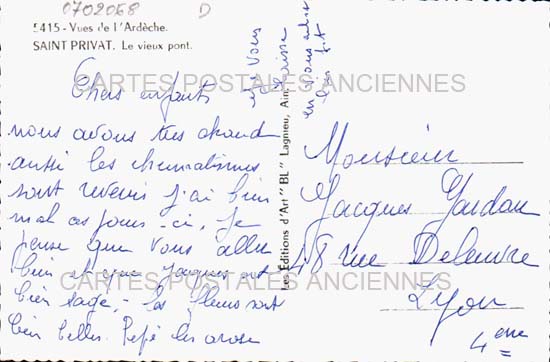 0702068
D
5415 - Vues de l'Ardèche.
SAINT PRIVAT. Le vieux pont.
CARTES POSTALES ANCIENNES
Chers enfants
nous avons tres chaud
aussi les rhumatismes
sont revenu j'ai bien
mal ces jours-ci, Je
pense que vous allez
bien et que Jacques est
bien sage, - les fleurs sont
bien belles. Pepé les arose
vous
en vous
Les Editions d'Art "BL" Lagnieu, Ain
Monsieur
Jacques
48 rue Deleuvre
Lyon
4eme
CARTES POSTALES ANCIENNES